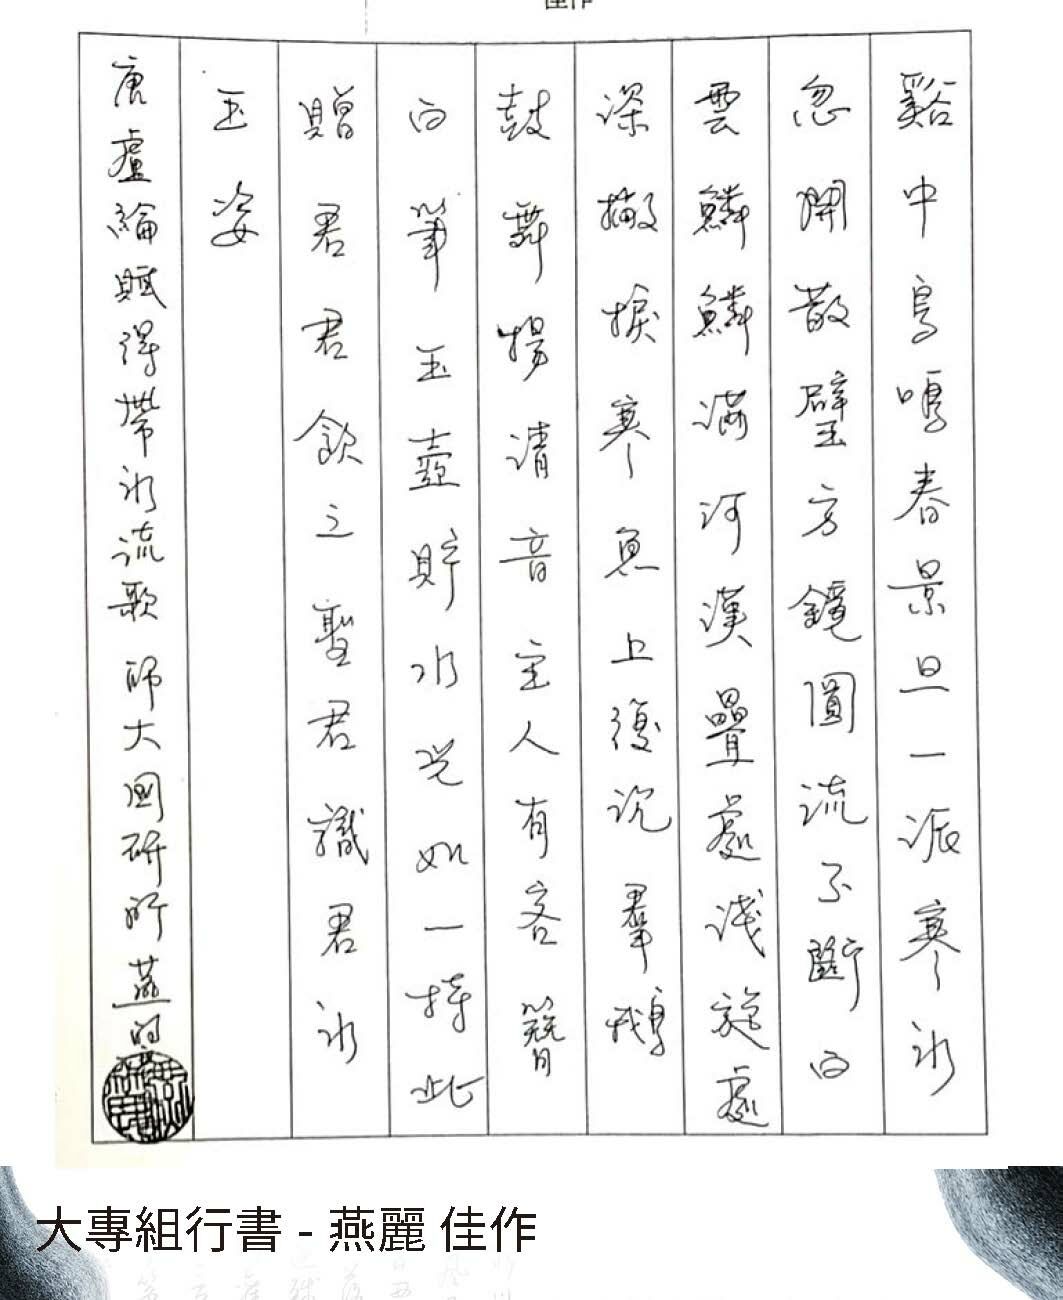 佳作
谿中鳥鳴春景旦一派寒冰
忽開散璧方鏡圓流不斷白
雲鱗鱗滿河漢疊處淺旋處
深撇捩寒魚上復沉羣鵝
鼓舞揚清音主人有客簪
白筆玉壺貯水光如一持此
贈君君飲之聖君識君冰
玉姿
唐盧綸賦得帶冰流歌 師大國研所燕
大專組行書 - 燕麗 佳作